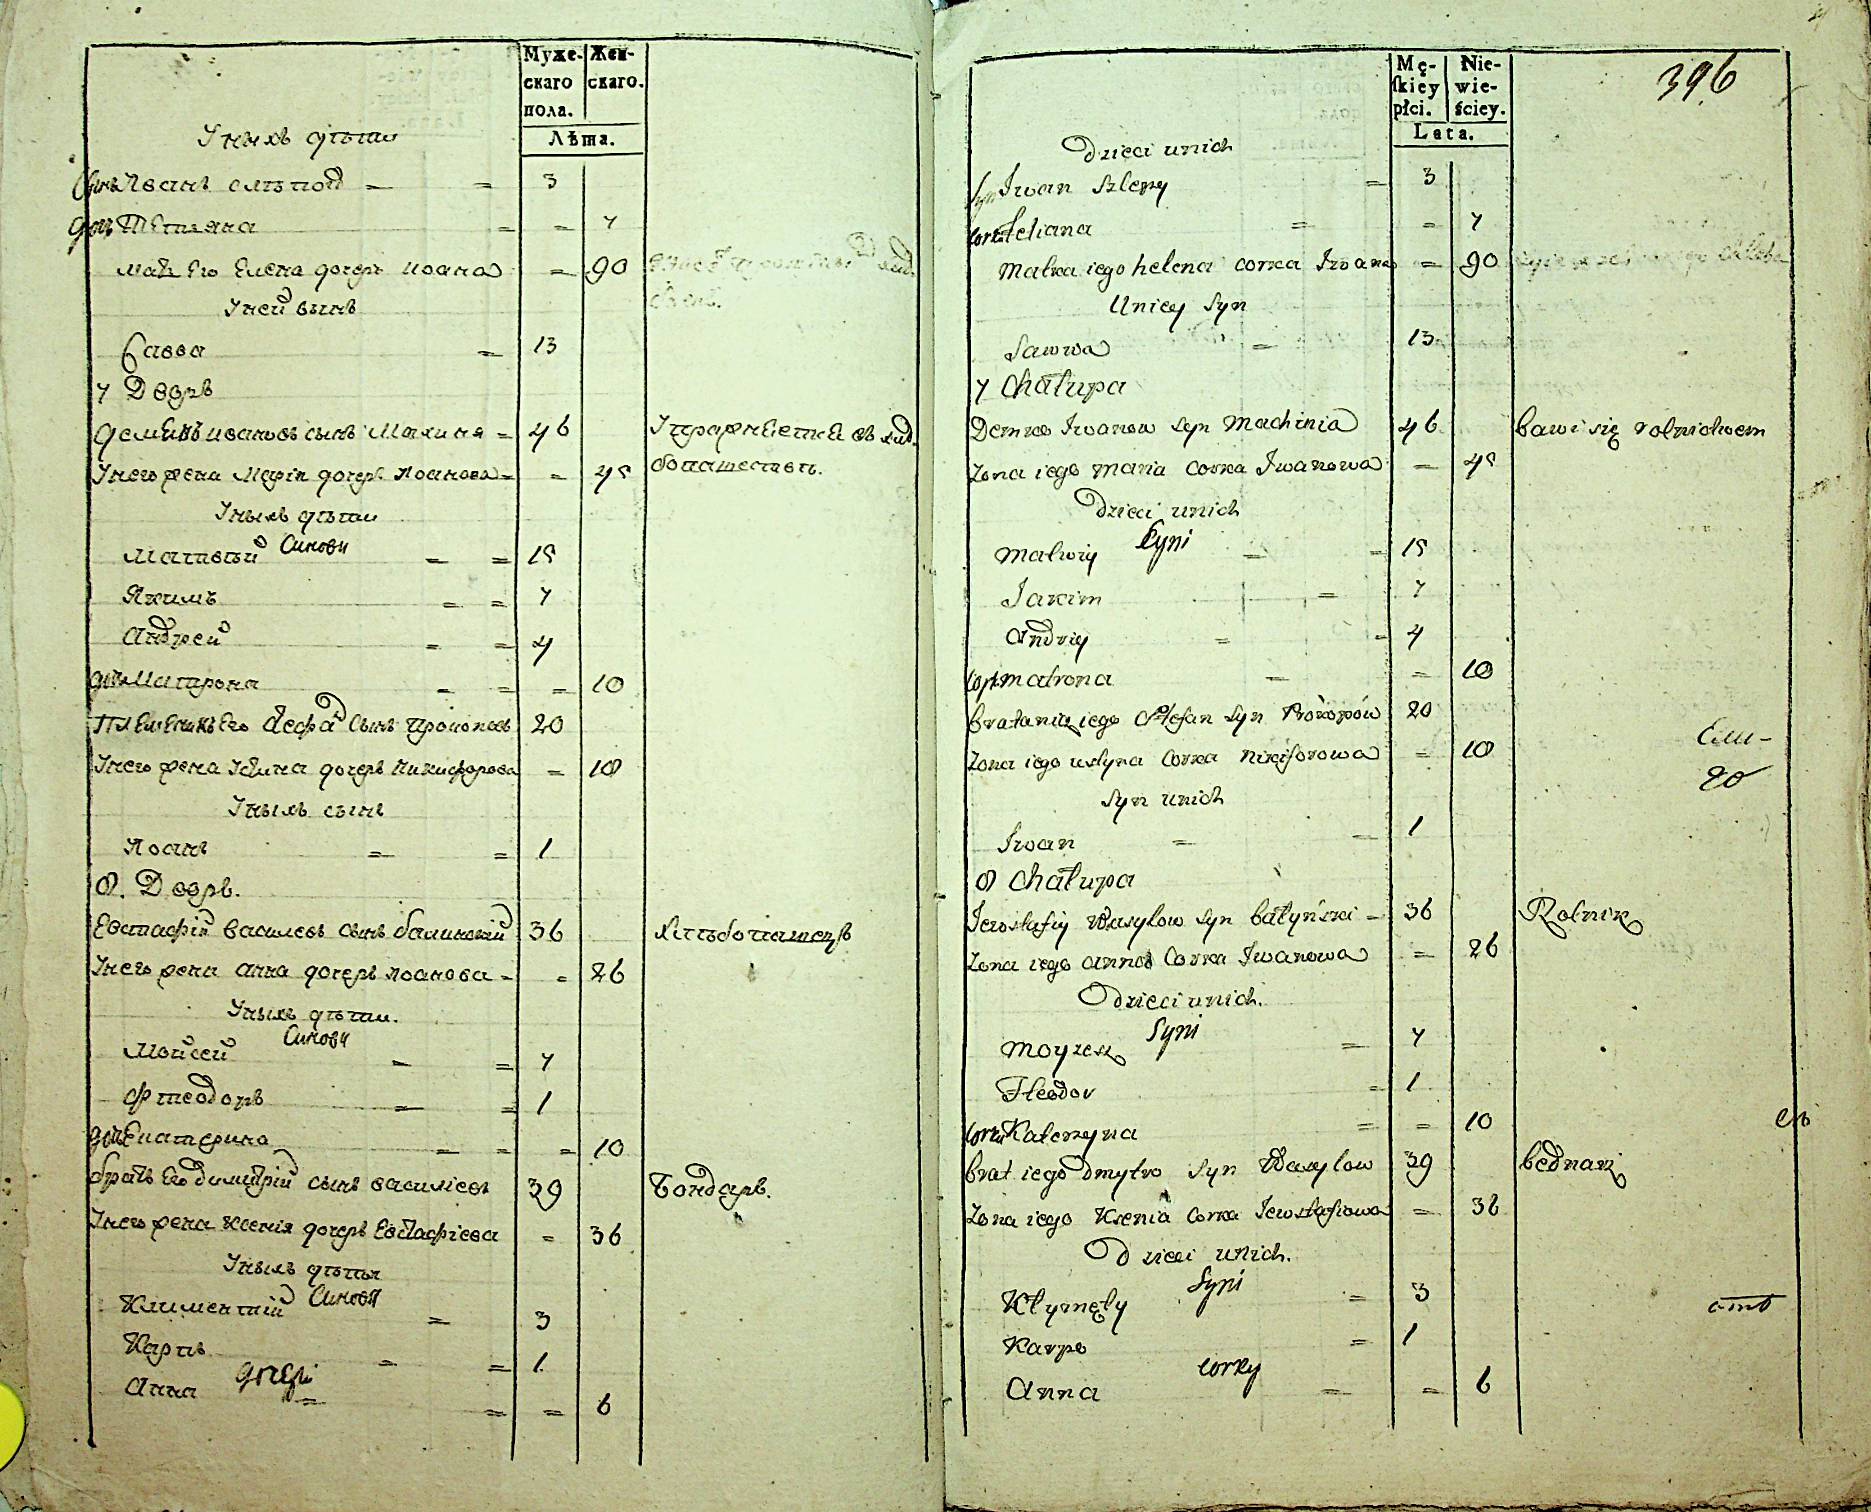 Муже-
скаго
пола.
Жен-
скаго.
Лѣта.
У нихъ дѣти
сынъ Иванъ слѣпой = = 3
дочь Тетяна = = 7
мать Его Елена дочерь Иоана = 90
У ней сынъ
Савва = 13
7 Дворъ
Демянъ ивановъ сынъ Махиня = 46 Упражняется въ хлѣ-
бопашествъ.
У него жена Марія дочерь Иоанова = = 45
У нихъ дѣти
Сынови
Матвѣй = = 15
Якимъ = = 7
Андрей = = 4
дочь Матрона = = = 10
Племеникъ Его Стефа сынъ Прокопов 20
У него жена Устина дочерь Никифорова = 18
У нихъ сынъ
Иоанъ = = 1
8. Дворъ.
Евстафій Василевъ сынъ балинский 36 Хлѣбопашецъ
У него жена анна дочерь иоанова = = 26
У нихъ дѣти.
Сынови
Мойсей = = 7
Фтеодоръ = = 1
дочь Екатерина = = = 10
братъ Его димитрій сынъ василіевъ 39 Бондаръ.
У него жена Ксенія дочерь Евстафіева = 36
У нихъ дѣты
Сынови
Климентій = 3
Карпъ = = 1
дочери
Анна = = = 6
396
Mę-
skiey
płci.
Nie-
wie-
ściey.
Lata.
Dzieci unich
syn Iwan szlepy = 3
corka Tetiana = = 7
Matka iego helena corka Iwana = 90
Uniey syn
Sawwa = 13
7 Chałupa
Demko Iwanow syn Machinia 46 bawi się rolnictwem
Zona iego maria Corka Iwanowa = 45
Dzieci unich
Syni
Matwiy = = 15
Jakim = 7
Andriy = = 4
cork matrona = = 10
bratanią iego Stefan syn Prokopów 20
Zona iego ustyna Corka nikiforowa = 18
Syn unich
Iwan = = 1
8 Chałupa
Iewstafiy Wasylow syn bałyński = 36 Rolnik
Zona iego anna Corka Iwanowa = 26
Dzieci unich.
Syni
Moyzesz = 7
Fteodor = 1
corka Katerzyna = = 10
brat iego Dmytro syn Wasylow 39 bednarz
Zona iego Ksenia Corka Iewstafiowa = 36
Dzieci unich.
Syni
Kłymęty = 3
Karpo = 1
corky
Anna = = 6